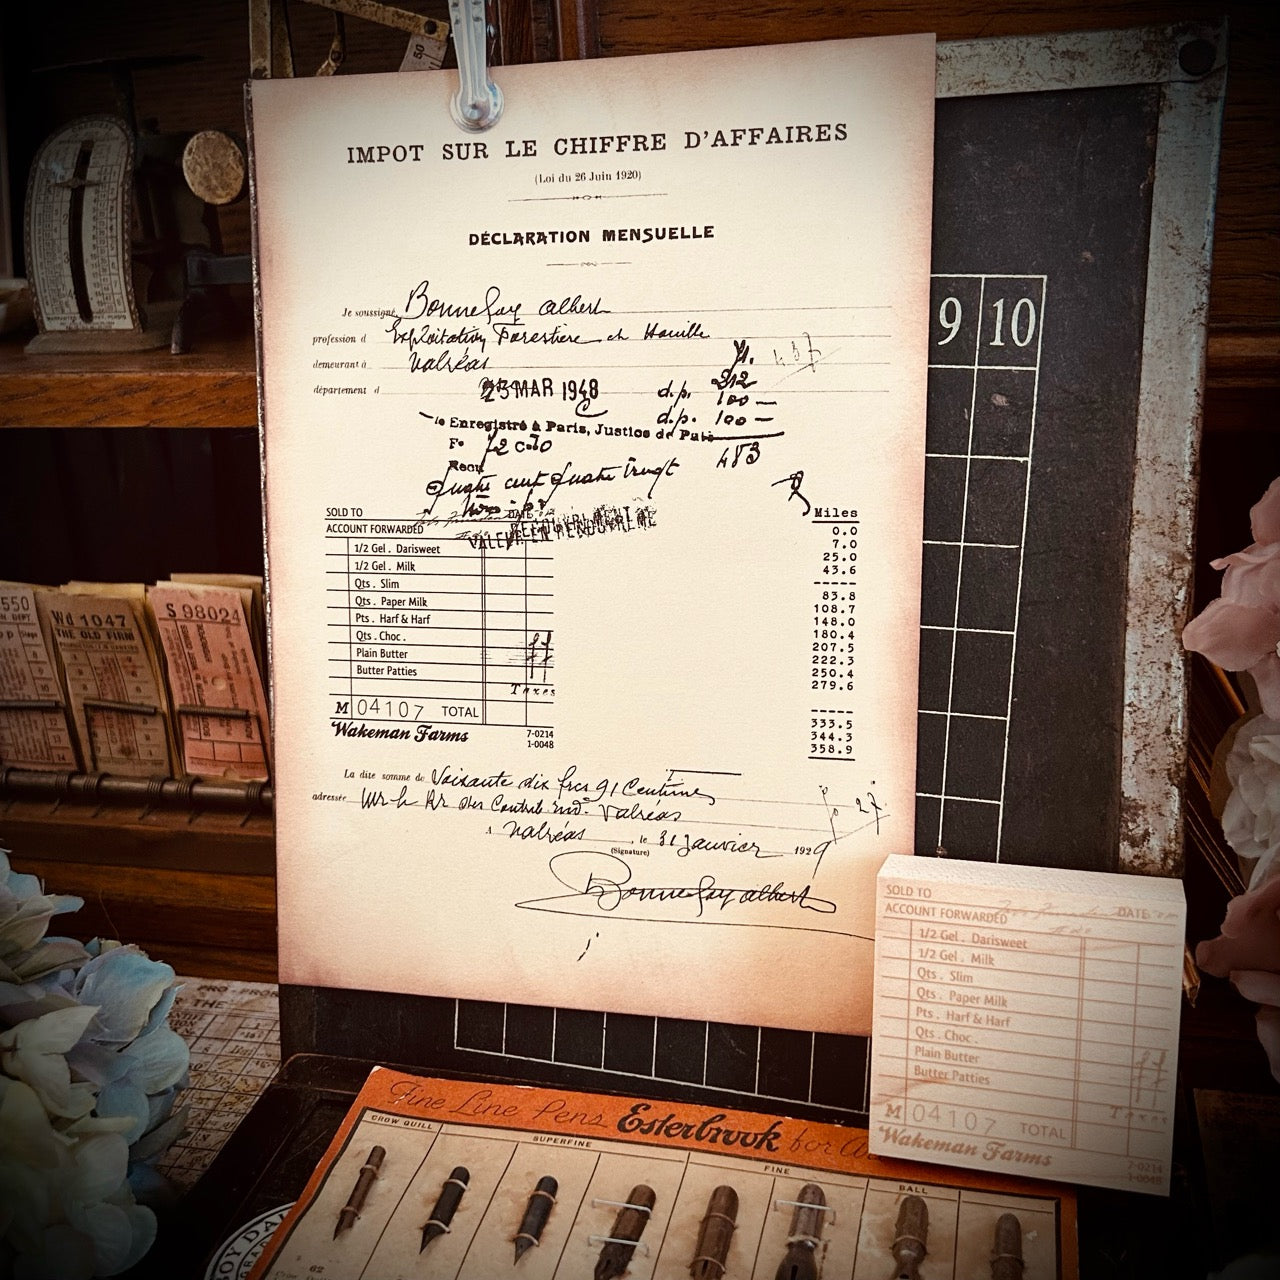 IMPOT SUR LE CHIFFRE D'AFFAIRES
(Loi du 26 Juin 1920)
DÉCLARATION MENSUELLE
Je soussigné, Bonnefay Albert
profession d Exploitation Forestière et Houille
demeurant à Valréas
département d
25 MAR 1948
d.p. 212
100 —
d.p. 100 —
le Enregistré à Paris, Justice de Paix
483
F° 72 C. 70
Recu
Quatre cent Quatre vingt
SOLD TO DATE
ACCOUNT FORWARDED
1/2 Gel. Darisweet
1/2 Gel. Milk
Qts. Slim
Qts. Paper Milk
Pts. Harf & Harf
Qts. Choc.
Plain Butter
Butter Patties
Taxes
M 04107 TOTAL
Wakeman Farms
7-0214
1-0048
Miles
0.0
7.0
25.0
43.6
-----
83.8
108.7
148.0
180.4
207.5
222.3
250.4
279.6
-----
333.5
344.3
358.9
La dite somme de Soixante dix frcs 91 Centimes
adressée Mr le Rr des Contrib Ind. Valréas
27
A Valréas, le 31 Janvier 1929
(Signature)
Bonnefay Albert
9 10
550
Wd 1047
THE OLD FIRM
S 98024
SOLD TO DATE
ACCOUNT FORWARDED
1/2 Gel. Darisweet
1/2 Gel. Milk
Qts. Slim
Qts. Paper Milk
Pts. Harf & Harf
Qts. Choc.
Plain Butter
Butter Patties
Taxes
M 04107 TOTAL
Wakeman Farms
7-0214
1-0048
Fine Line Pens Esterbrook for
CROW QUILL SUPERFINE FINE BALL
62